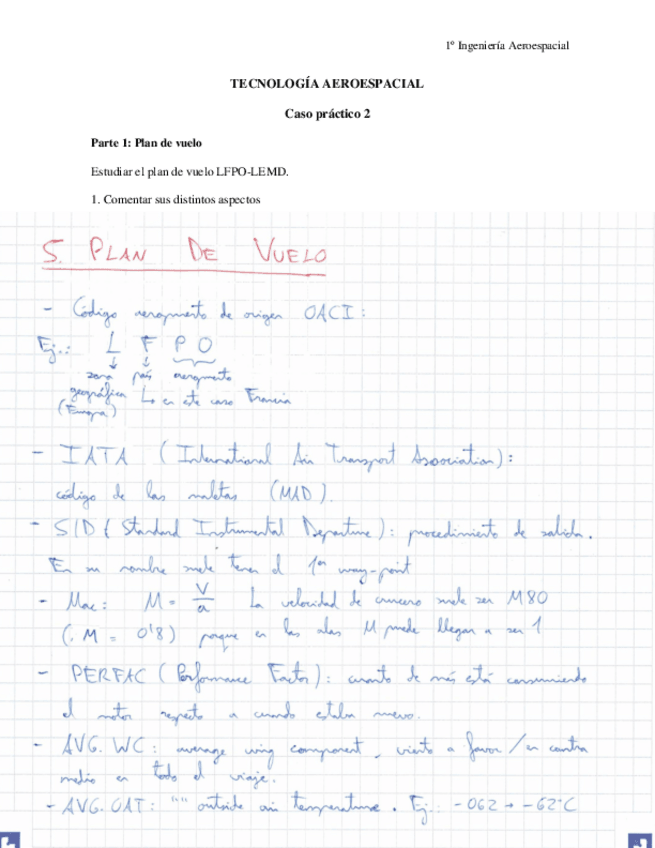 1º Ingeniería Aeroespacial
TECNOLOGÍA AEROESPACIAL
Caso práctico 2
Parte 1: Plan de vuelo
Estudiar el plan de vuelo LFPO-LEMD.
1. Comentar sus distintos aspectos
5. PLAN DE VUELO
- Código aeropuerto de origen OACI:
Ej.: L F P O
↓ ↓
zona país aeropuerto
geográfica ↳ en este caso Francia
(Europa)
- IATA (International Air Transport Association):
código de las maletas (MAD).
- SID (Standard Instrumental Departure): procedimiento de salida.
En su nombre suele tener el 1er way-point
- Mac: M = V/a La velocidad de crucero suele ser M80
(M = 0'8) porque en las alas M puede llegar a ser 1
- PERFAC (Performance Factor): cuanto de más está consumiendo
el motor respecto a cuando estaba nuevo.
- AVG. WC: average wing component, viento a favor/en contra
medio en todo el viaje.
- AVG. OAT: "" outside air temperature. Ej.: -062 → -62°C